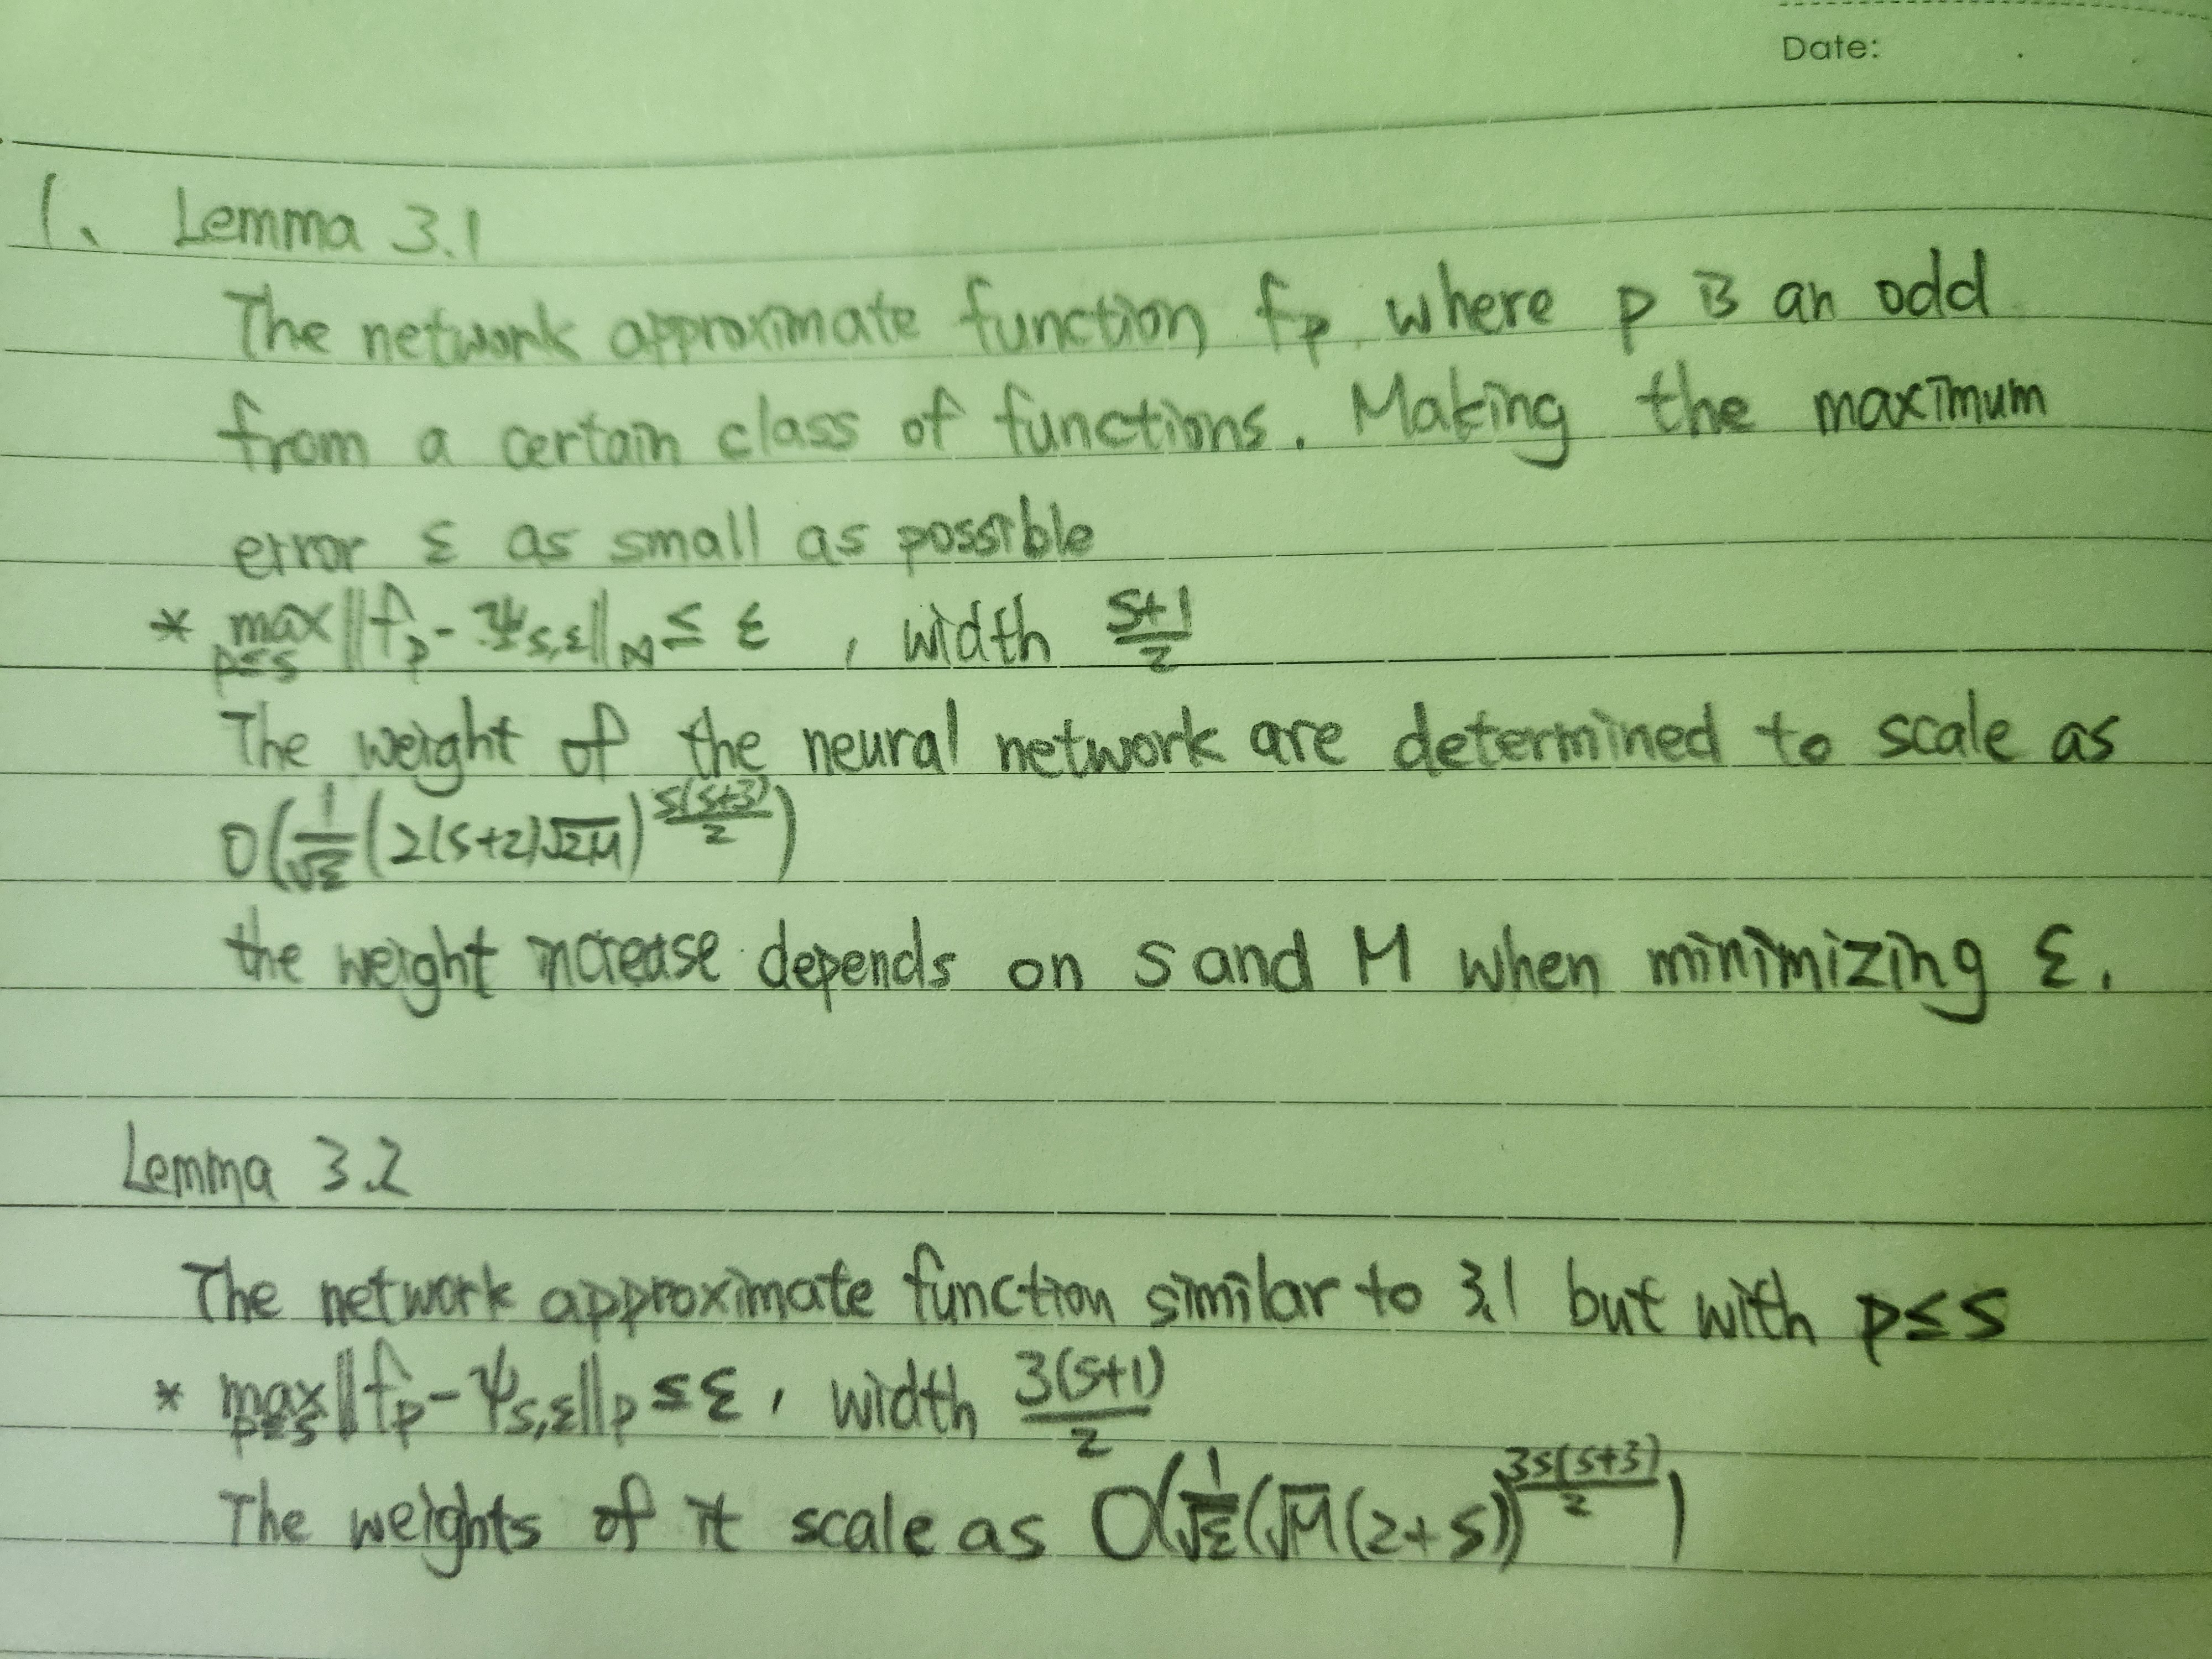 Date:
1、 Lemma 3.1
The network approximate function fp where p is an odd
from a certain class of functions. Making the maximum
error ε as small as possible
* max p≤s ||fp - Ψs,ε||M ≤ ε , width s+1/2
The weight of the neural network are determined to scale as
O(1/√ε (2(s+2)√2M)^s(s+3)/2)
the weight increase depends on s and M when minimizing ε.
Lemma 3.2
The network approximate function similar to 3.1 but with p≤s
* max p≤s ||fp - ψs,ε||p ≤ε , width 3(s+1)/2
The weights of it scale as O(1/√ε (√M(2+s))^3s(s+3)/2)